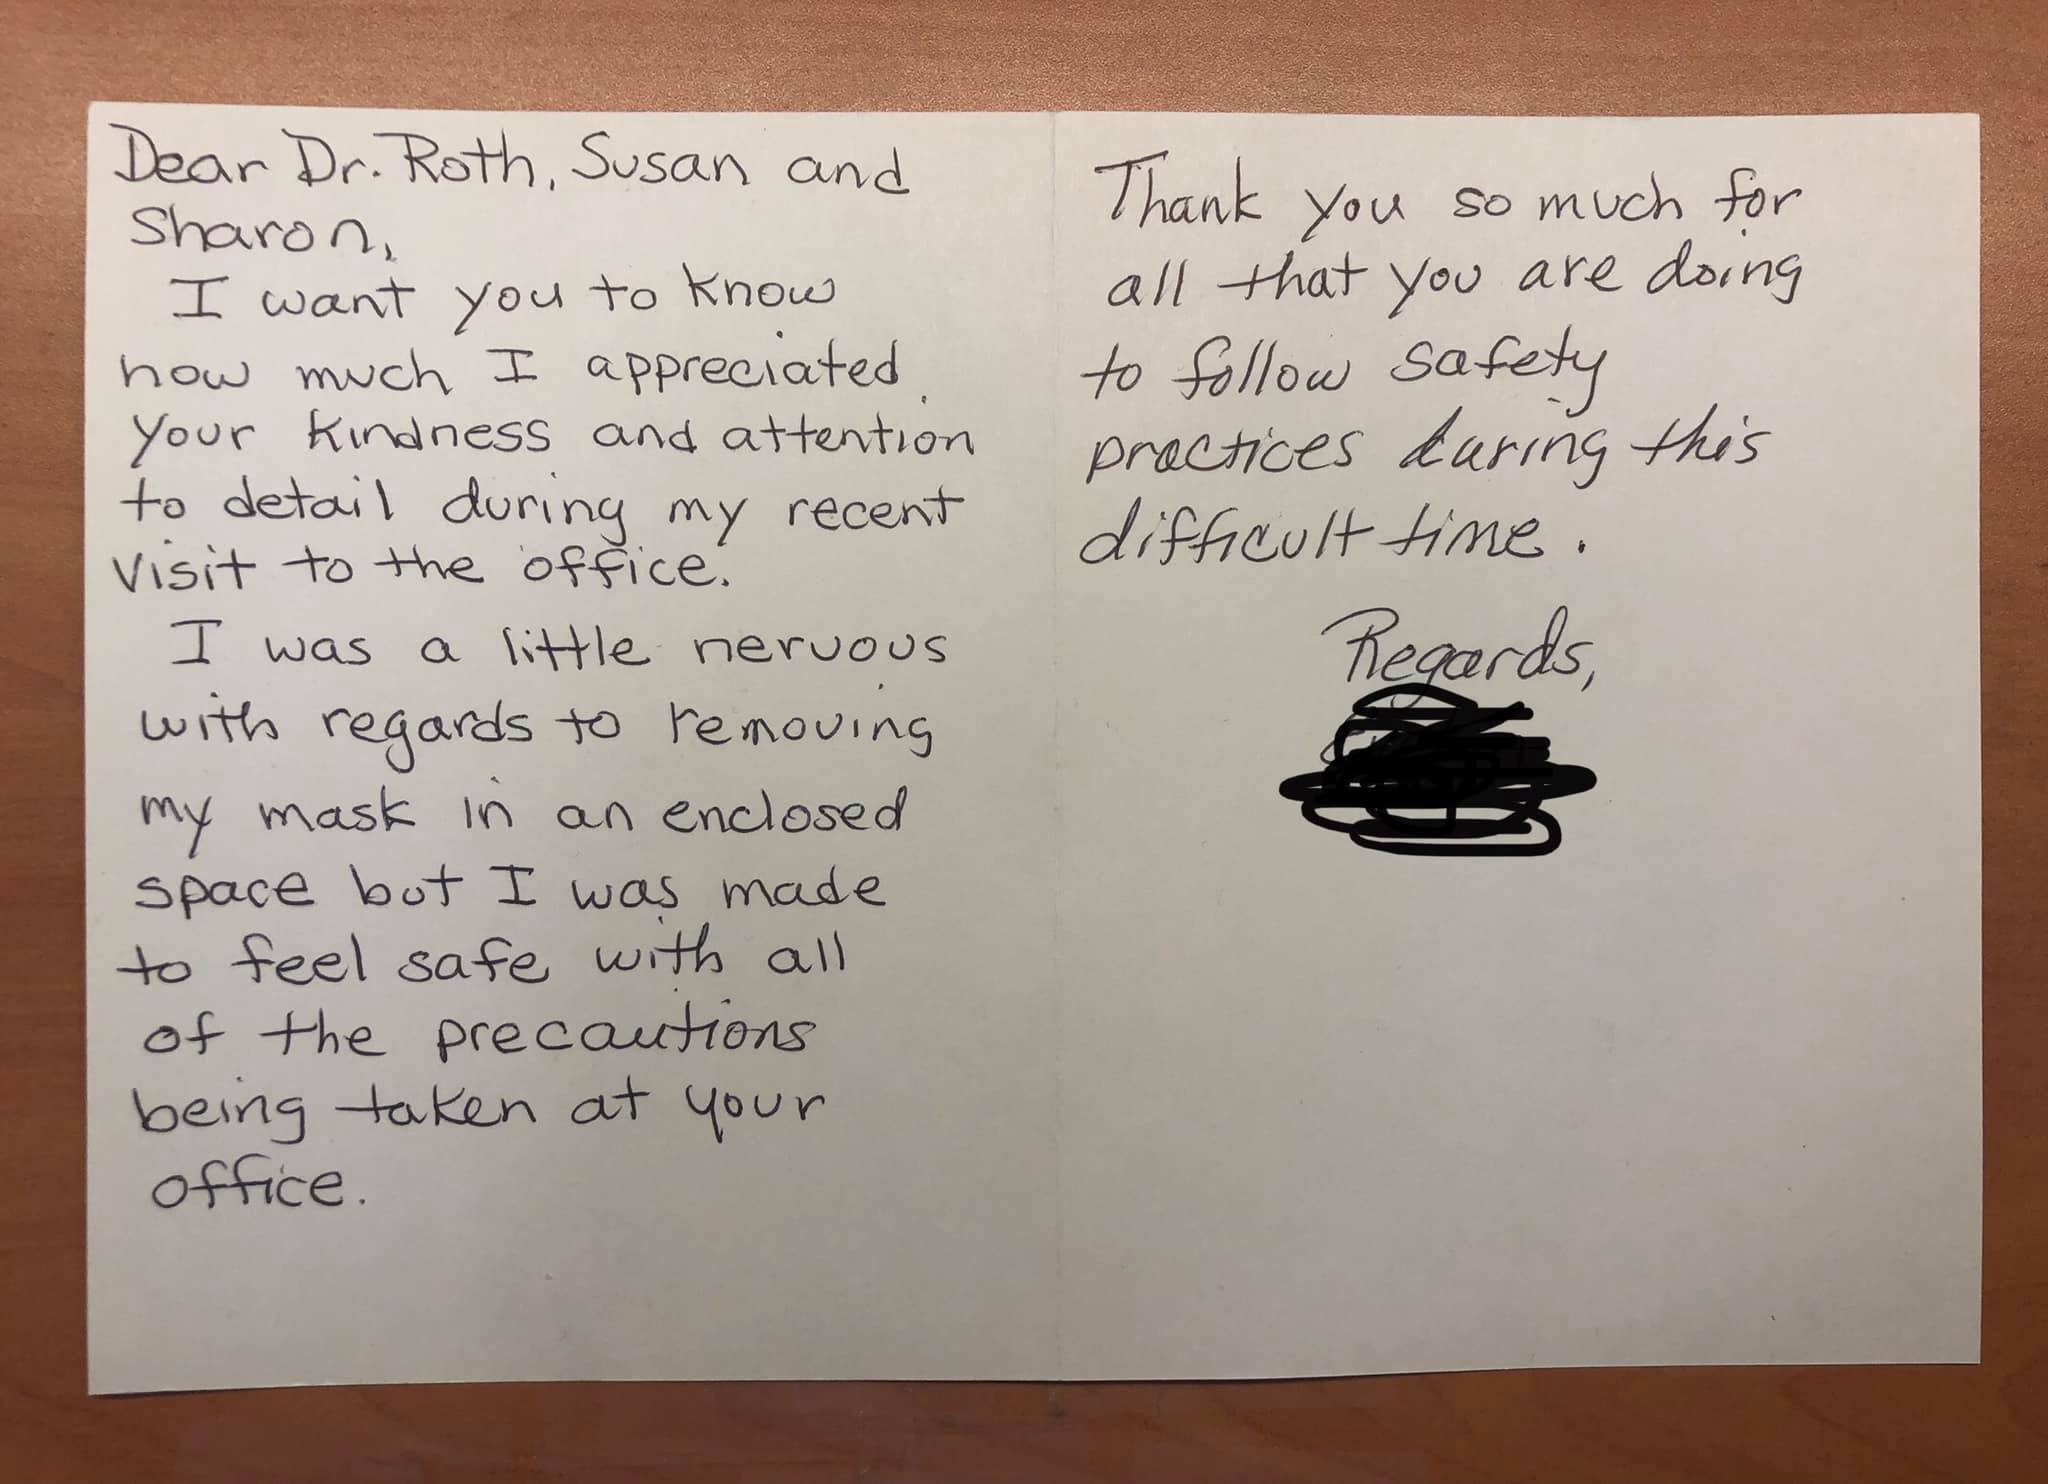 Dear Dr. Roth, Susan and
Sharon,
I want you to know
how much I appreciated
your kindness and attention
to detail during my recent
visit to the office.
I was a little nervous
with regards to removing
my mask in an enclosed
space but I was made
to feel safe with all
of the precautions
being taken at your
office.
Thank you so much for
all that you are doing
to follow safety
practices during this
difficult time.
Regards,